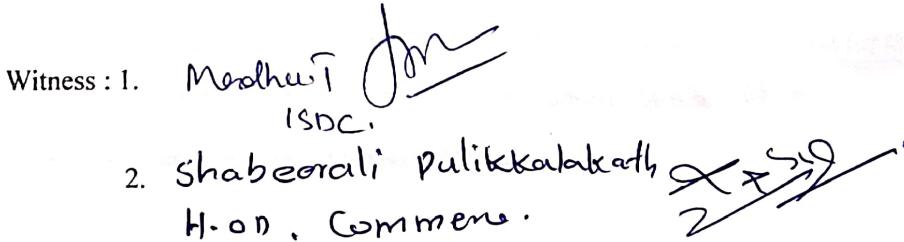 Witness : 1. Madhu T
ISDC.
2. Shabeerali Pulikkalakath
H.OD, Commerce.